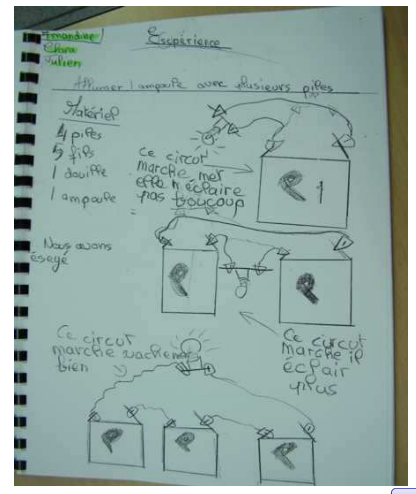 Amandine
Chara
Julien
Expérience
Allumer 1 ampoule avec plusieurs piles
Matériel
4 piles
5 fils
1 douille
1 ampoule
Ce circut
marche mer
elle n'éclaire
pas boucoup
P 1
Nous avons
éseyé
P
P
Ce circut
marche il
éclair
plus
Ce circut
marche vachement
bien
P
P
P